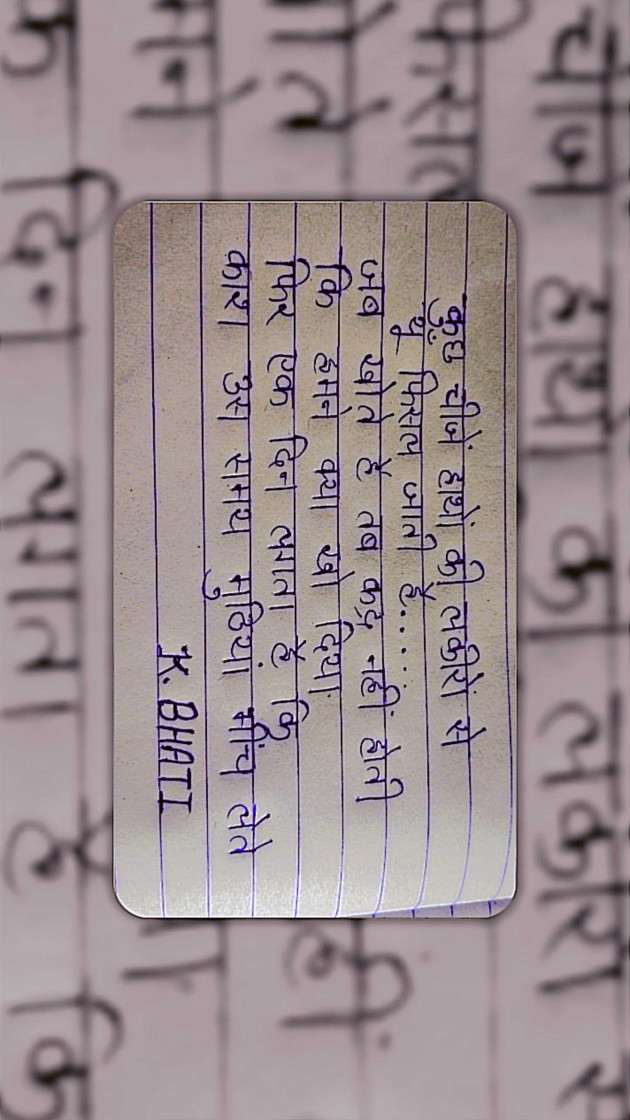 कुछ चीजें हाथों की लकीरों से
यूं फिसल जाती हैं.....
जब खोते हैं तब कद्र नहीं होती
कि हमने क्या खो दिया
फिर एक दिन लगता है कि
काश उस समय मुठियां भींच लेते
K. BHATI